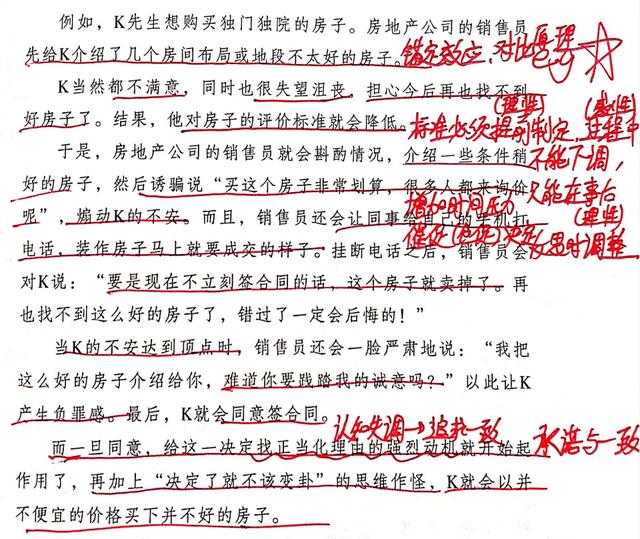 例如，K先生想购买独门独院的房子。房地产公司的销售员
先给K介绍了几个房间布局或地段不太好的房子。锚定效应、对比原理
K当然都不满意，同时也很失望沮丧，担心今后再也找不到
(理性) (感性)
好房子了。结果，他对房子的评价标准就会降低。标准必须提前制定，过程中
于是，房地产公司的销售员就会斟酌情况，介绍一些条件稍 不能下调，
好的房子，然后诱骗说“买这个房子非常划算，很多人都来询价 只能在事后
增加时间压力
呢”，煽动K的不安。而且，销售员还会让同事给自己的手机打 (理性)
催促(仓促)决定 反思时调整
电话，装作房子马上就要成交的样子。挂断电话之后，销售员会
对K说：“要是现在不立刻签合同的话，这个房子就卖掉了。再
也找不到这么好的房子了，错过了一定会后悔的！”
当K的不安达到顶点时，销售员还会一脸严肃地说：“我把
这么好的房子介绍给你，难道你要践踏我的诚意吗？”以此让K
产生负罪感。最后，K就会同意签合同。
认知失调→追求一致 承诺与一致
而一旦同意，给这一决定找正当化理由的强烈动机就开始起
作用了，再加上“决定了就不该变卦”的思维作怪，K就会以并
不便宜的价格买下并不好的房子。